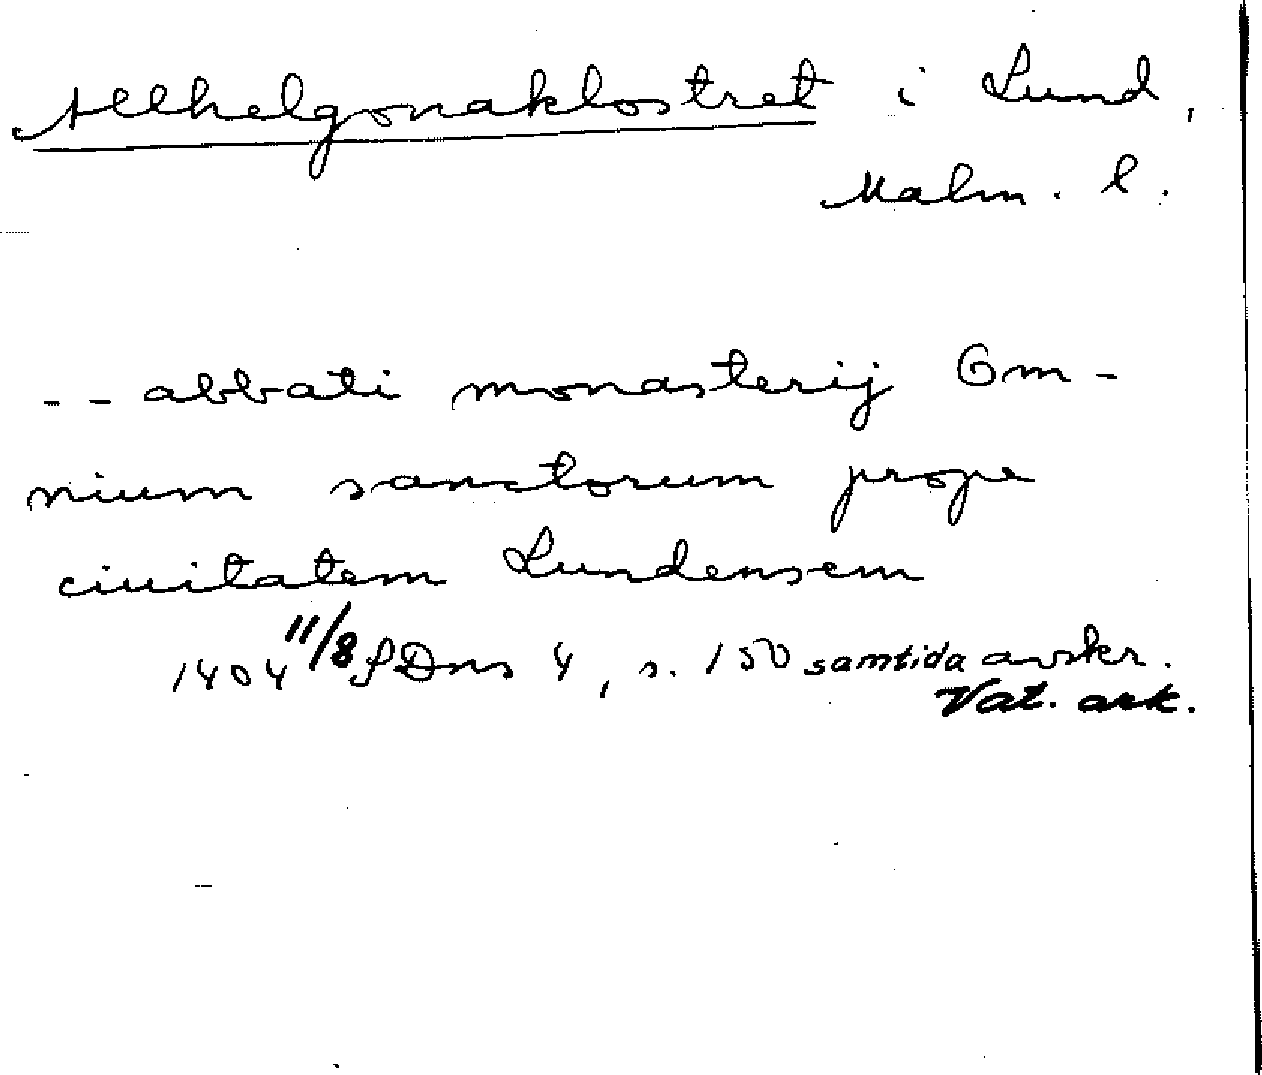 Allhelgonaklostret i Lund,
Malm. l.
-- abbati monasterij Om-
nium sanctorum prope
ciuitatem Lundensem
1404 11/8 SDns 4, s. 150 samtida avskr.
Vat. ark.